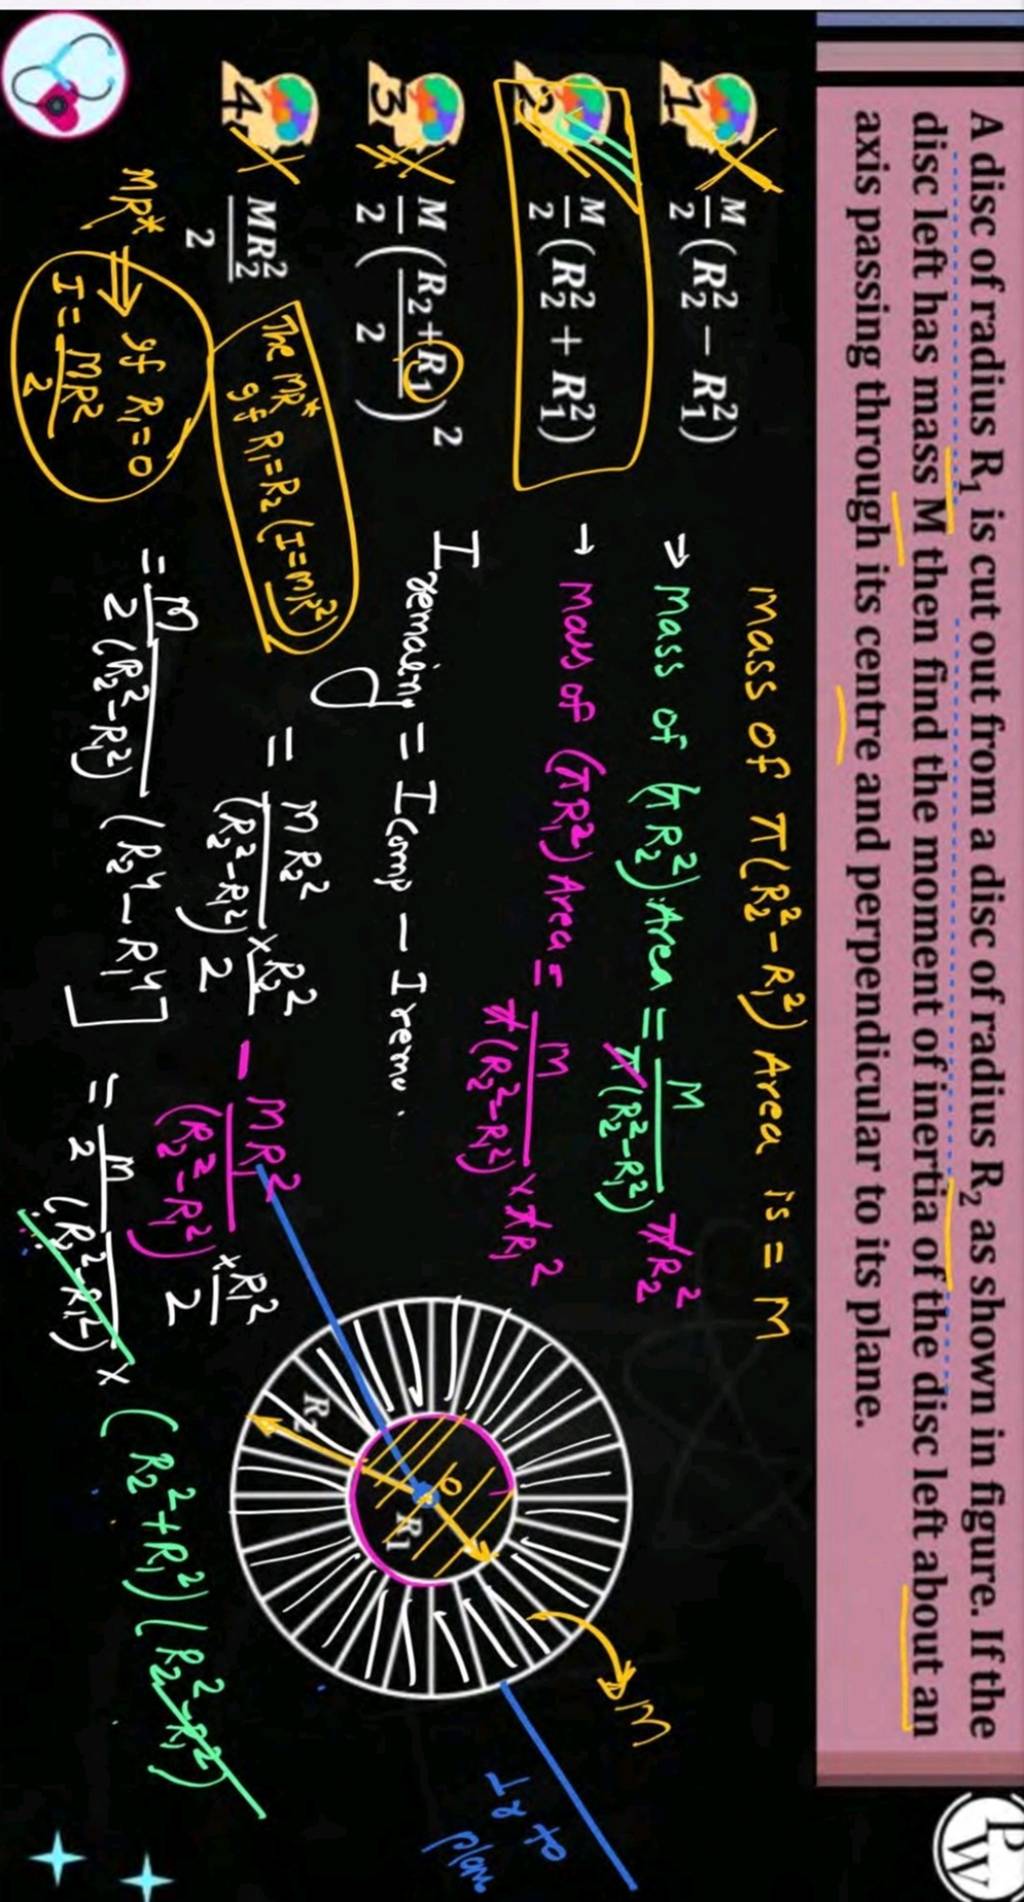 A disc of radius R₁ is cut out from a disc of radius R₂ as shown in figure. If the
disc left has mass M then find the moment of inertia of the disc left about an
axis passing through its centre and perpendicular to its plane.
PW
1 M/2 (R₂² − R₁²)
2 M/2 (R₂² + R₁²)
3 M/2 ((R₂+R₁)/2)²
4 MR₂²/2
Mass of π(R₂² − R₁²) Area is = M
→ Mass of (πR₂²) Area = M/π(R₂²−R₁²) πR₂²
→ Mass of (πR₁²) Area = M/π(R₂²−R₁²) × πR₁²
I remaining = I comp − I remo.
= MR₂²/(R₂²−R₁²) × R₂²/2 − MR₁²/(R₂²−R₁²) × R₁²/2
= M/2(R₂²−R₁²) (R₂⁴ − R₁⁴]
= M/2(R₂²−R₁²) × (R₂²+R₁²)(R₂²−R₁²)
The MR*
if R₁=R₂ (I=MR²)
MR* ⇒ if R₁=0
I = MR²/2
R₂
O
R₁
M
⊥r to
plane